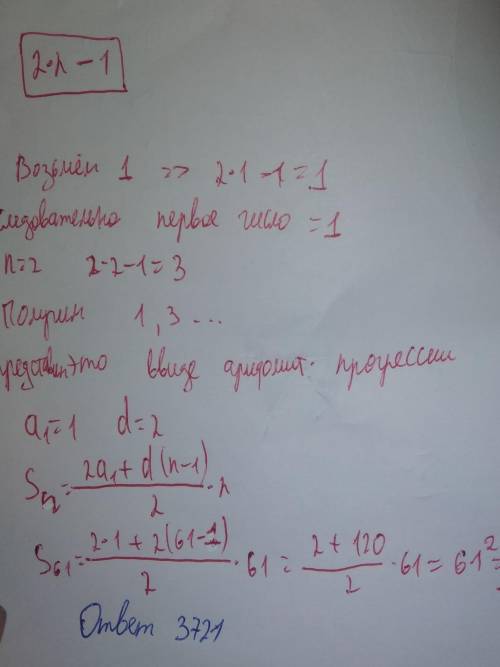 2·n - 1
Возьмём 1 >> 2·1 - 1 = 1
следовательно первое число = 1
n=2 2·2-1=3
Получим 1, 3 ...
представим это ввиде арифмит. прогрессии
a₁=1 d=2
Sₙ = (2a₁ + d(n-1))/2 · n
S₆₁ = (2·1 + 2(61-1))/2 · 61 = (2 + 120)/2 · 61 = 61² =
Ответ 3721